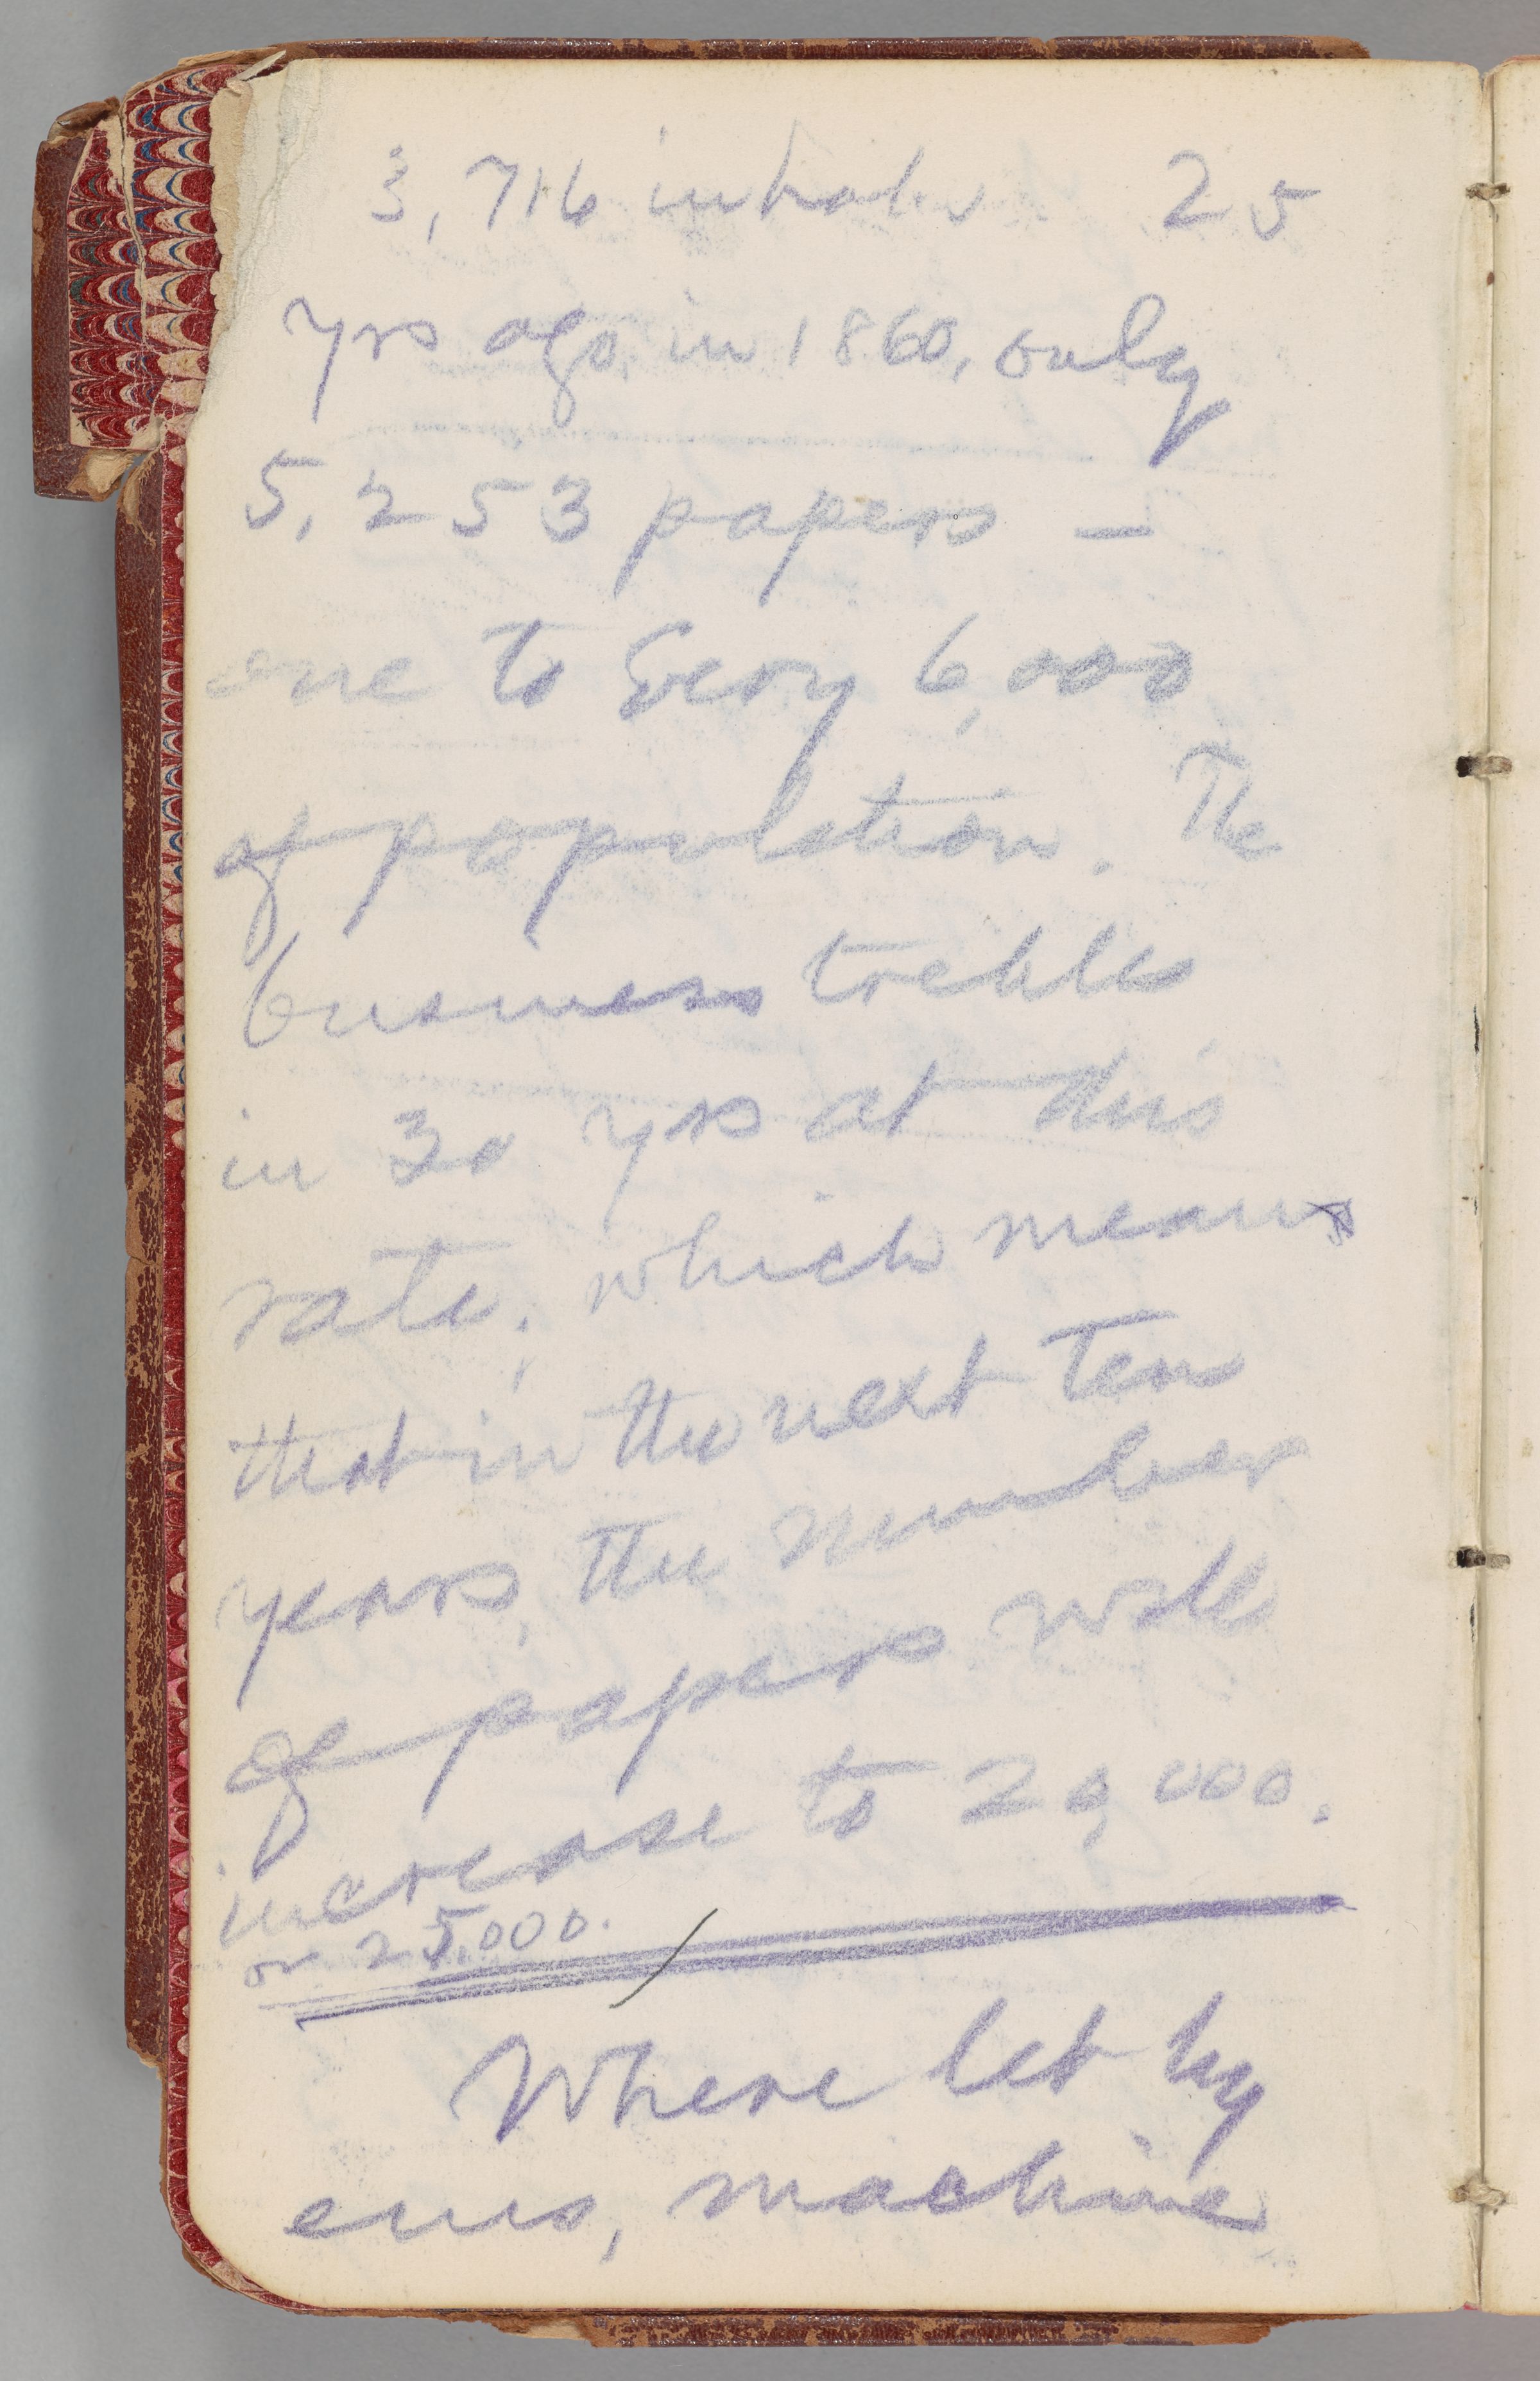 3,716 inhab. 25
yrs ago, in 1860, only
5,253 papers —
one to every 6,000
of population. The
business trebles
in 30 yrs at this
rate; which means
that in the next ten
years, the number
of papers will
increase to 20,000.
or 25,000.
Where let by
ems, machine